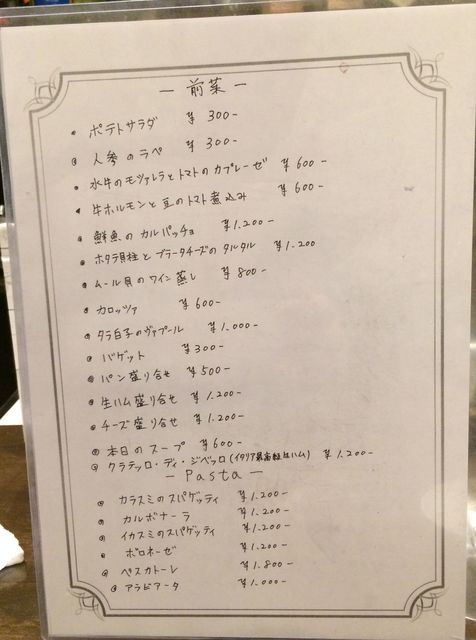 — 前菜 —
ポテトサラダ ¥300-
人参のラペ ¥300-
水牛のモツァレラとトマトのカプレーゼ ¥600-
牛ホルモンと豆のトマト煮込み ¥600-
鮮魚のカルパッチョ ¥1.200-
ホタテ貝柱とブラータチーズのタルタル ¥1.200
ムール貝のワイン蒸し ¥800-
カロッツァ ¥600-
タラ白子のヴァプール ¥1.000-
バゲット ¥300-
パン盛り合せ ¥500-
生ハム盛り合せ ¥1.200-
チーズ盛り合せ ¥1.200-
本日のスープ ¥600-
クラテッロ・ディ・ジベッロ(イタリア最高級生ハム) ¥1.200-
— Pasta —
カラスミのスパゲッティ ¥1.200-
カルボナーラ ¥1.200-
イカスミのスパゲッティ ¥1.200-
ボロネーゼ ¥1.200-
ペスカトーレ ¥1.800-
アラビアータ ¥1.000-